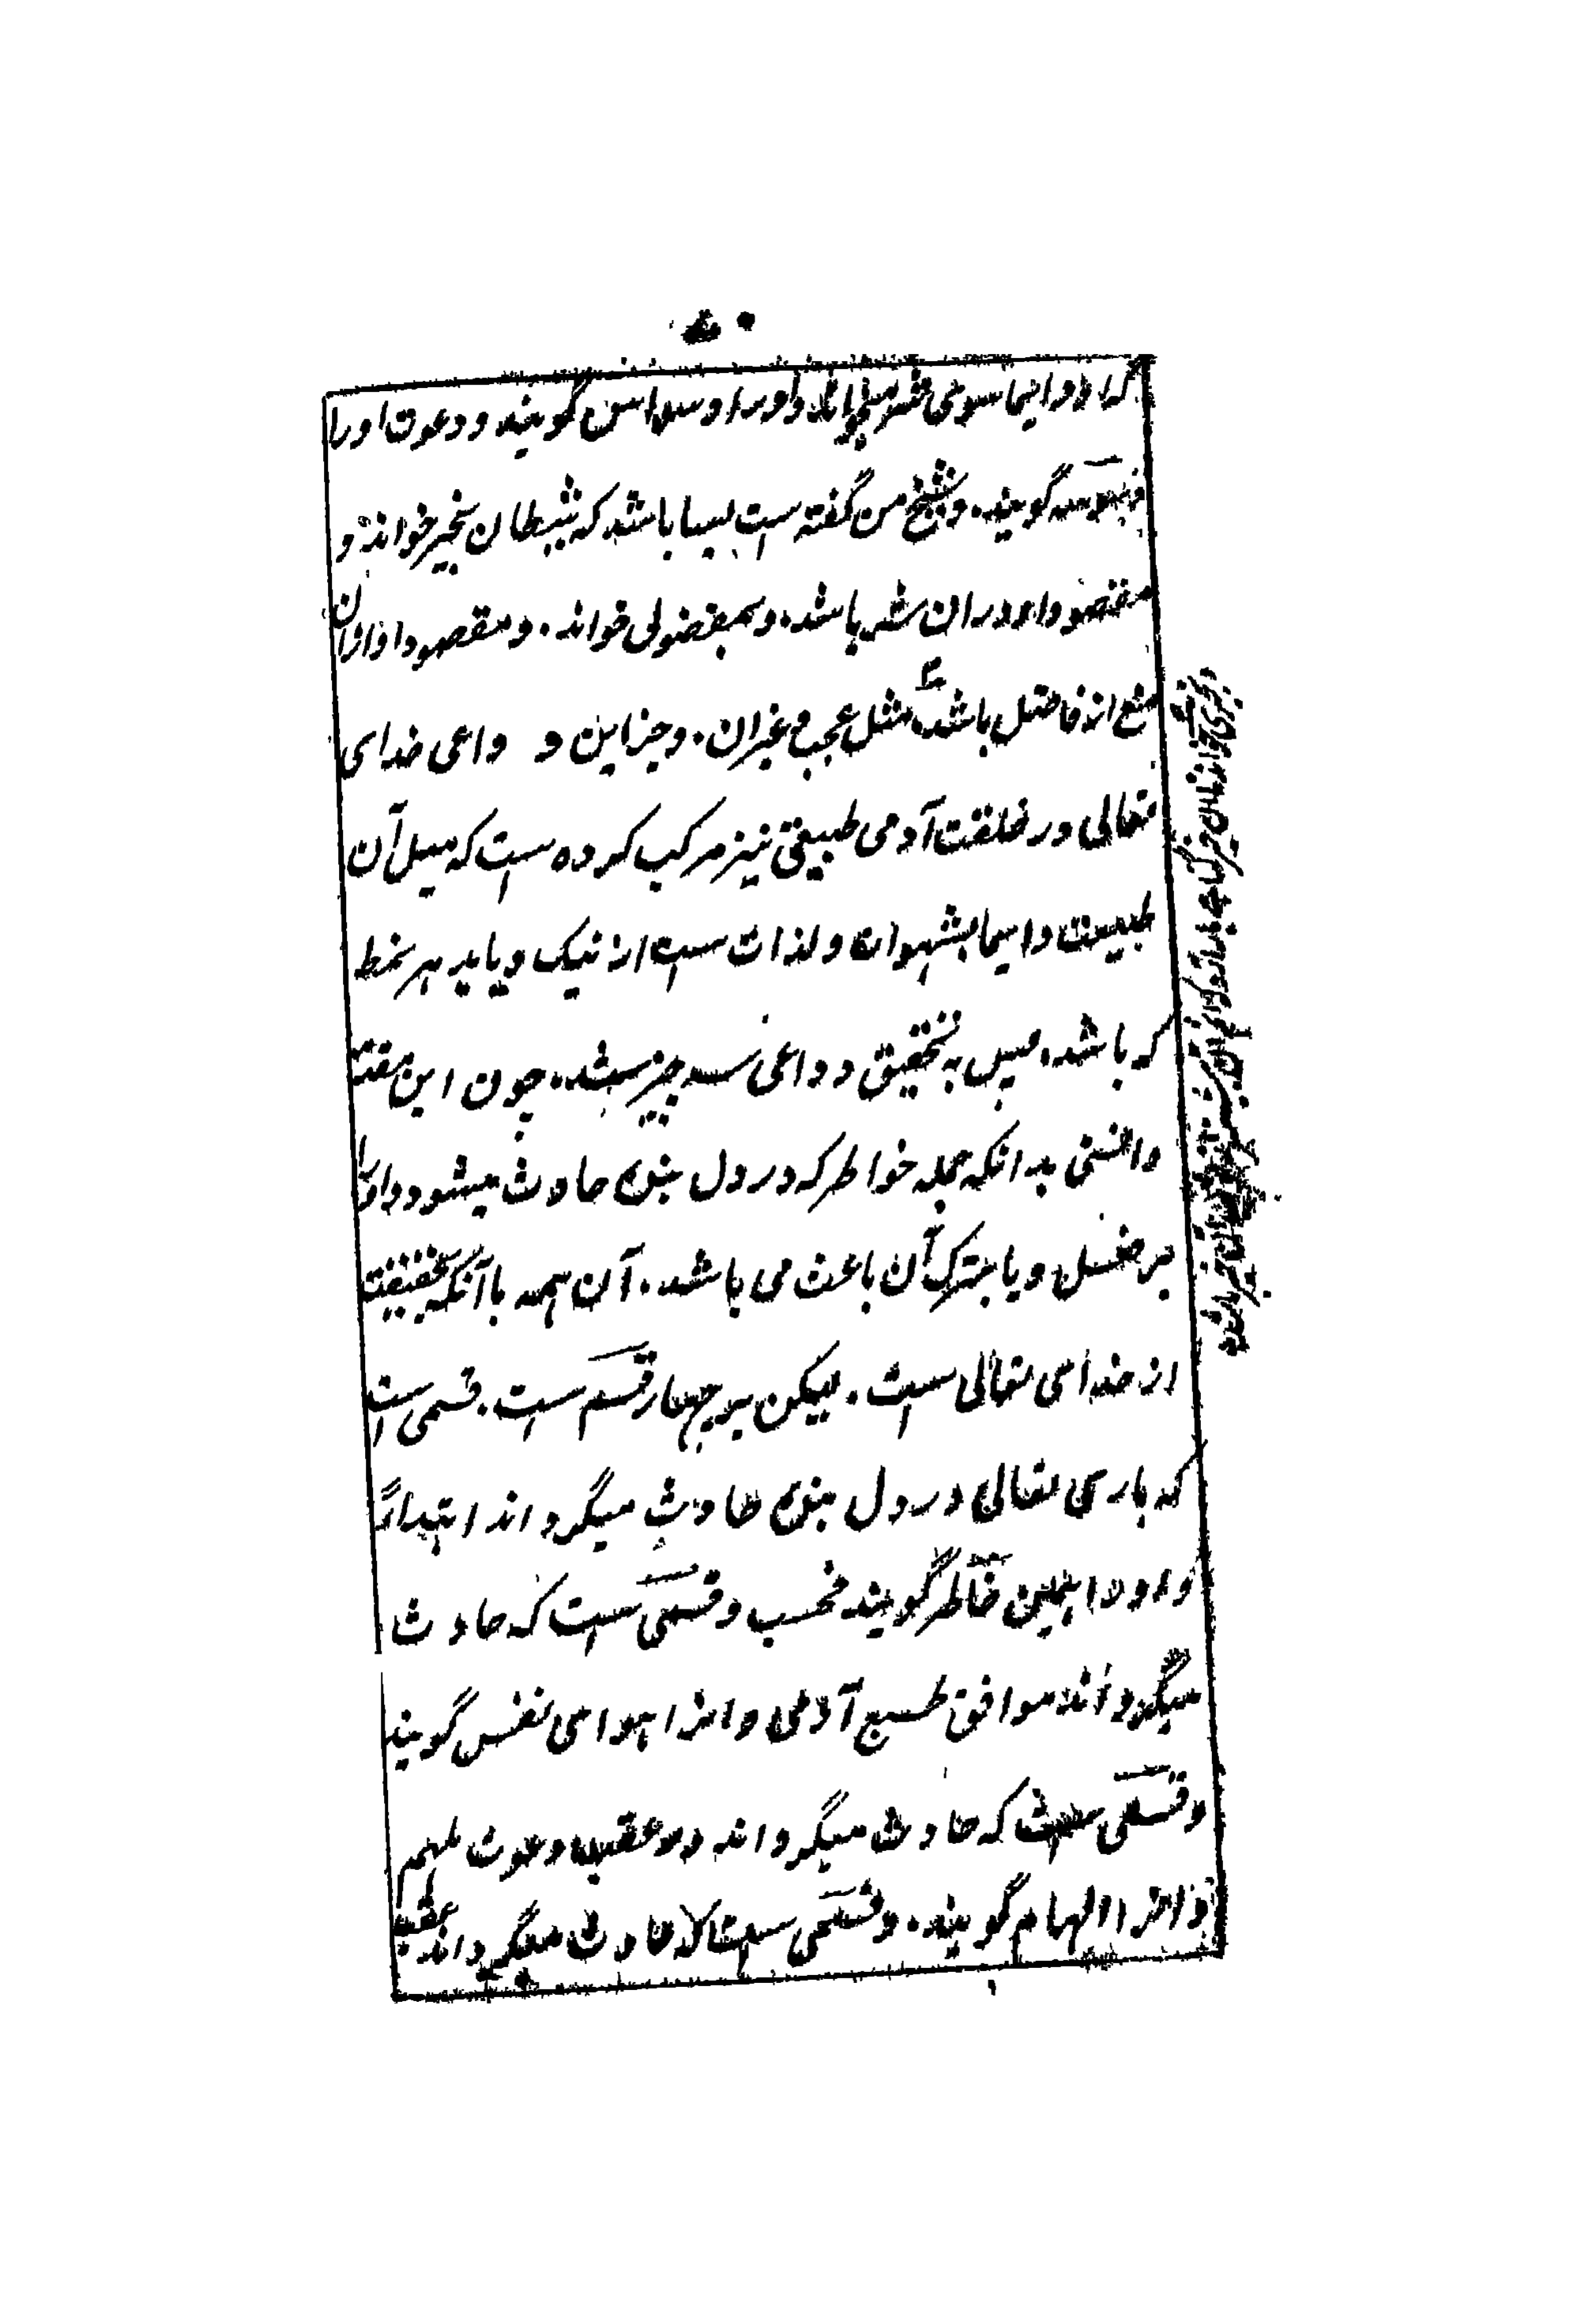 که او دایما سوی شر میخواند و او را وسواس گویند و دعوت او را
وسوسه گویند. و شیخ من گفته ست بسا باشد که شیطان بخیر خواند و
مقصود او در ان شر باشد. و بمفضولی خواند. و مقصود او ازان
منع از فاضل باشد مثل عجب و غیر ان. و جز این دو داعی خدای
تعالی در خلقت آدمی طبیعتی نیز مرکب کرده ست که میل آن
طبیعت دایما بشهوات و لذات ست از نیک و یا بد هر نمط
که باشد. پس به تحقیق دواعی سه چیز شد. چون این مقدمه
دانستی بدانکه جمله خواطر که در دل بنده حادث میشود و او را
بر فعل و یا بترک آن باعث می باشد. آن همه با آنکه بحقیقت
از خدای تعالی ست. لیکن بر چهار قسم ست. قسمی است
که باری تعالی در دل بنده حادث میگرداند ابتداءً
و او را همین خاطر گویند فحسب و قسمی ست که حادث
میگرداند موافق طبع آدمی و انرا هوای نفس گویند
و قسمی ست که حادث میگرداند در عقیب دعوت ملهم
و انرا الهام گویند. و قسمی ست که حادث میگرداند عقیب